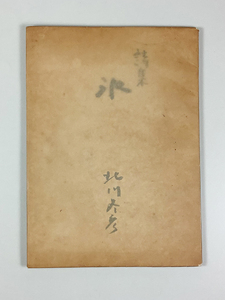 詩集
氷
北川冬彦